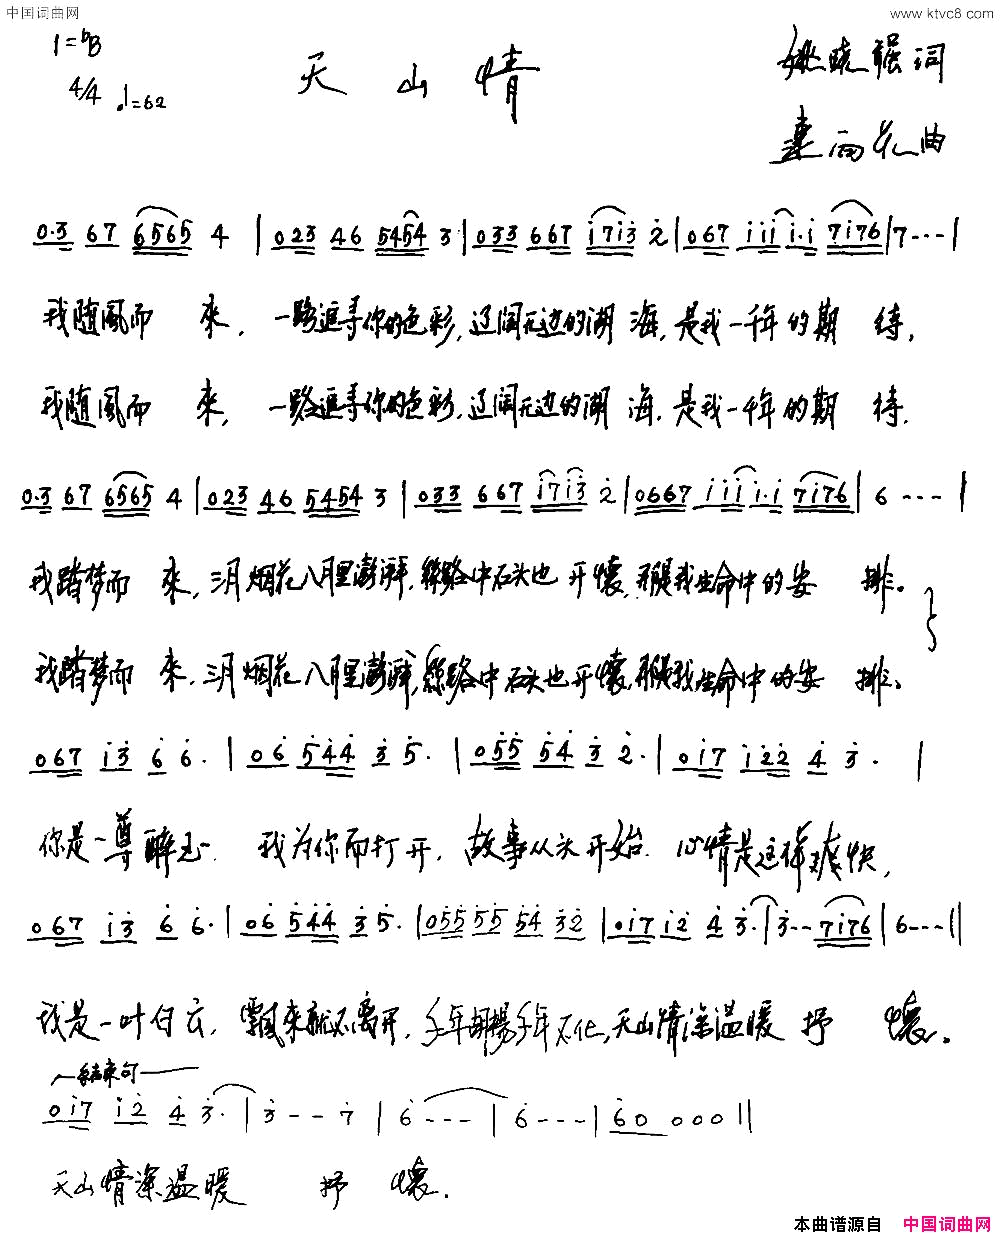 中国词曲网
www.ktvc8.com
1=♭B
4/4 ♩=62
天山情
姚晓强词
雨花曲
0·3 67 6565 4 | 023 46 5454 3 | 033 667 i7i3 2 | 067 iii i·i 7i76 | 7--- |
我随風而來，一路追寻你的色彩，辽阔无边的湖海，是我一千年的期待，
我随風而來，一路追寻你的色彩，辽阔无边的湖海，是我一千年的期待，
0·3 67 6565 4 | 023 46 5454 3 | 033 667 i7i3 2 | 0667 iii i·i 7i76 | 6--- |
我踏梦而來，三月烟花八月里澎湃，絲路中石头也开懷，那是我生命中的安排。
我踏梦而來，三月烟花八月里澎湃，絲路中石头也开懷，那是我生命中的安排。
067 i3 6 6· | 06 544 3 5· | 055 54 3 2· | 0i7 i22 4 3· |
你是一尊醉玉，我为你而打开，故事从头开始，心情是这样爽快，
067 i3 6 6· | 06 544 3 5· | 055 55 54 32 | 0i7 i2 4 3· | 3--7i76 | 6--- ||
我是一叶白云，飘来就不离开，千年胡楊千年不化，天山情深温暖抒懷。
结束句
0i7 i2 4 3· | 3--7 | 6--- | 6--- | 60 000 ||
天山情深温暖抒懷．
本曲谱源自 中国词曲网